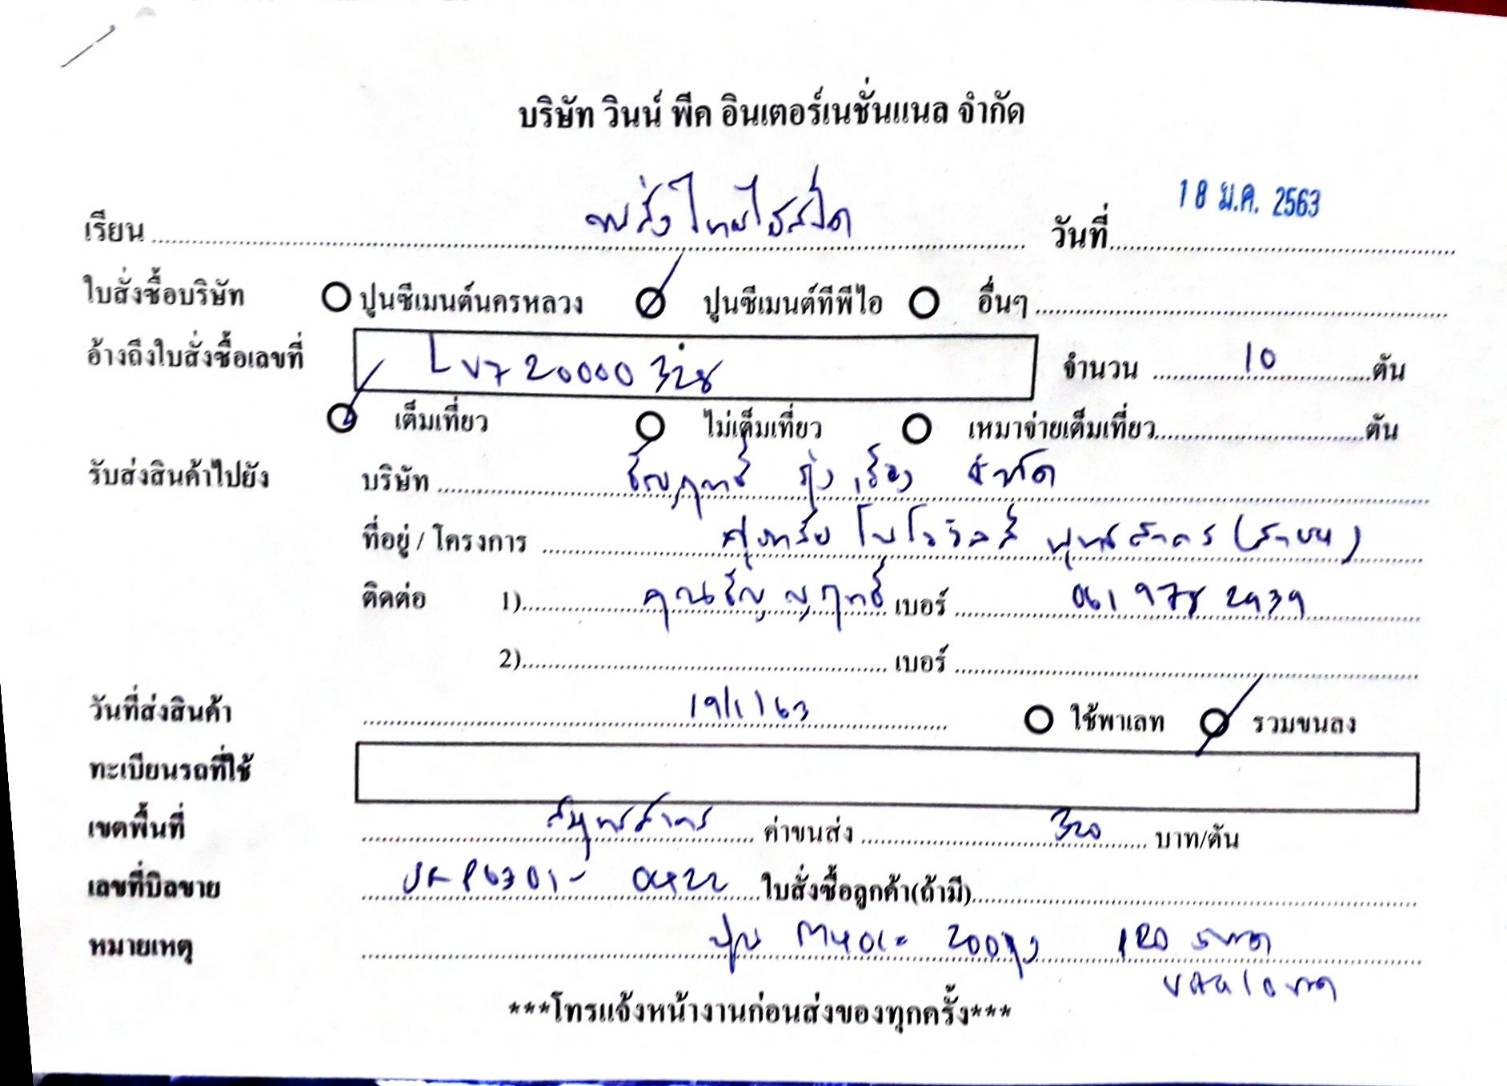 บริษัท วินน์ พีค อินเตอร์เนชั่นแนล จำกัด
เรียน ขนส่งไทยไฮสปีด วันที่ 18 ม.ค. 2563
ใบสั่งซื้อบริษัท ปูนซีเมนต์นครหลวง ปูนซีเมนต์ทีพีไอ อื่นๆ
อ้างถึงใบสั่งซื้อเลขที่ จำนวน 10 ตัน
เต็มเที่ยว ไม่เต็มเที่ยว เหมาจ่ายเต็มเที่ยว ตัน
รับส่งสินค้าไปยัง บริษัท ธัญฤทธิ์ รุ่งเรือง จำกัด
ที่อยู่ / โครงการ
ติดต่อ 1) คุณธัญญฤทธิ์ เบอร์ 061 978 2939
2) เบอร์
วันที่ส่งสินค้า 19/1/63 ใช้พาเลท รวมขนลง
ทะเบียนรถที่ใช้
เขตพื้นที่ สมุทรสาคร ค่าขนส่ง 320 บาท/ตัน
เลขที่บิลขาย ใบสั่งซื้อลูกค้า(ถ้ามี)
หมายเหตุ ปูน 200 ถุง 120 บาท
***โทรแจ้งหน้างานก่อนส่งของทุกครั้ง***